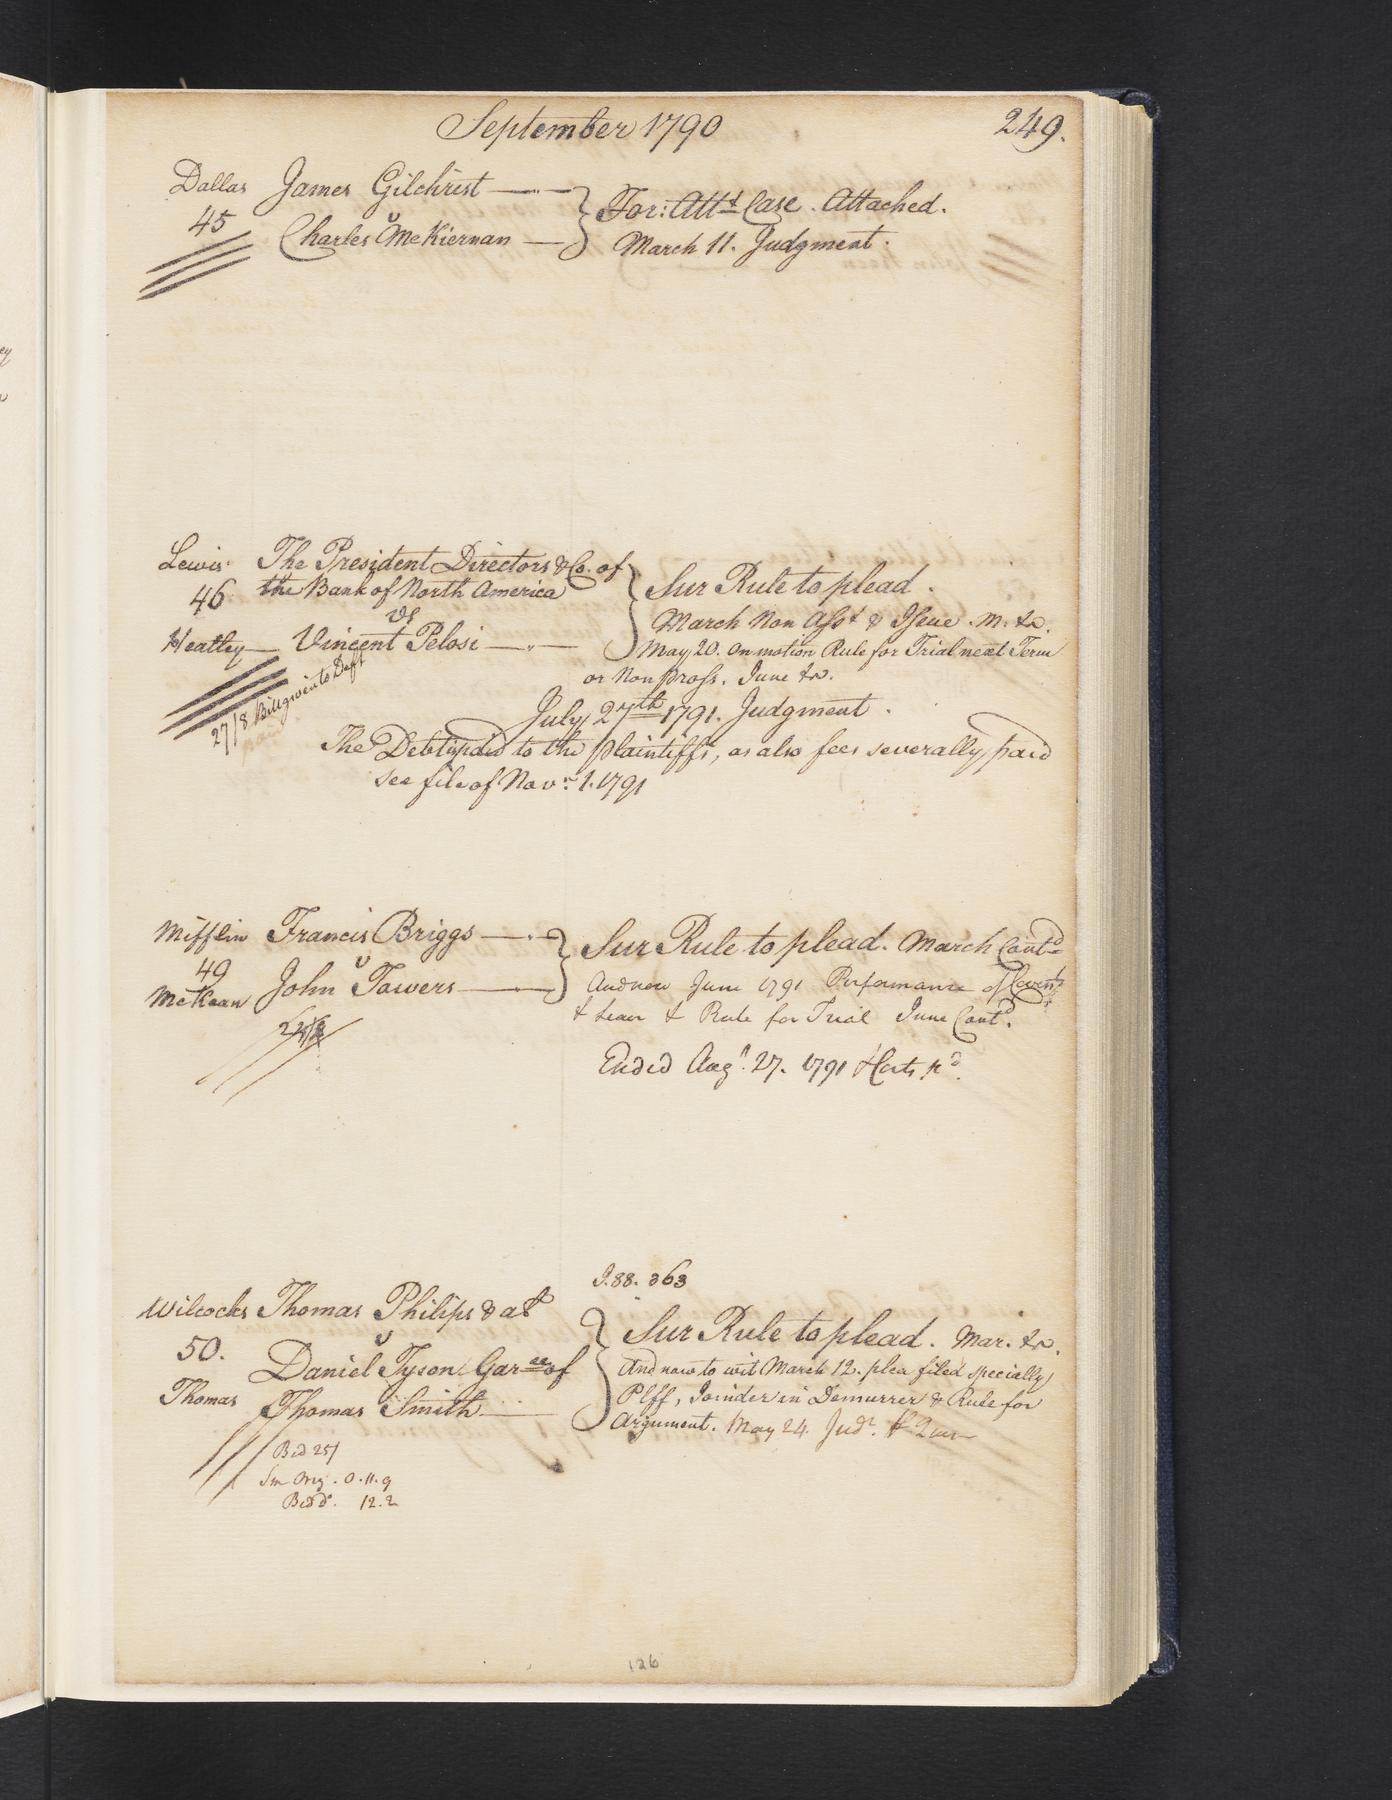 September 1790
249.
Dallas James Gilchrist
45 v
Charles McKiernan
For: Attt Case. Attached.
March 11. Judgment.
Lewis The President Directors & Co. of
46 the Bank of North America
vs
Heatley Vincent Pelosi
27/8 Bill given to Deft
paid
Sur Rule to plead.
March Non Asst & Issue. M. &c.
May 20. on motion Rule for Trial next Term
or Non pross. June &c.
July 27th 1791. Judgment.
The Debt paid to the plaintiffs, as also fees severally paid
see file of Novr 1. 1791
Mifflin Francis Briggs
49 v
McKean John Towers
Sur Rule to plead. March Contd
And now June 1791 Performance of Covents
& leave & Rule for Trial June Contd.
Ended Augt. 27. 1791 & Costs pd.
J. 88. 363
Wilcocks Thomas Philips & al
50. v
Daniel Tyson Garee of
Thomas Thomas Smith
Sur Rule to plead. Mar. &c.
And now to wit March 12. plea filed specially
Plff, Joinder in Demurrer & Rule for
Argument. May 24. Judt.
25/
Orig. 0.11.9
12.2
126